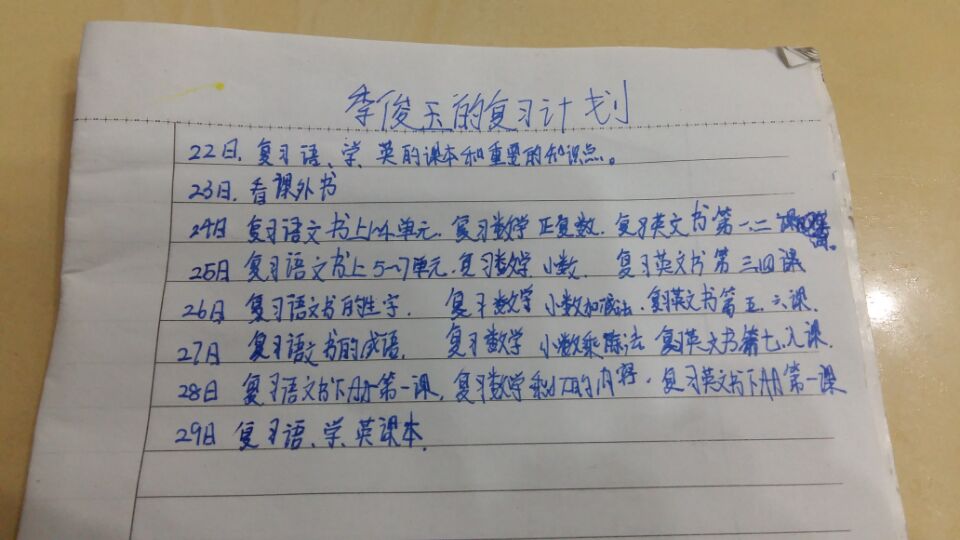 季俊玉的复习计划
22日. 复习语、学、英的课本和重要的知识点。
23日. 看课外书
24日 复习语文书上1~4单元. 复习数学 正复数. 复习英文书第一、二课.
25日 复习语文书上5~7单元. 复习数学 小数. 复习英文书第三四课
26日 复习语文书的生字. 复习数学 小数加减法. 复习英文书第五、六课.
27日 复习语文书的成语. 复习数学 小数乘除法 复习英文书第七、八课.
28日 复习语文书下册第一课. 复习数学 的内容. 复习英文书下册第一课
29日 复习语、学、英课本.